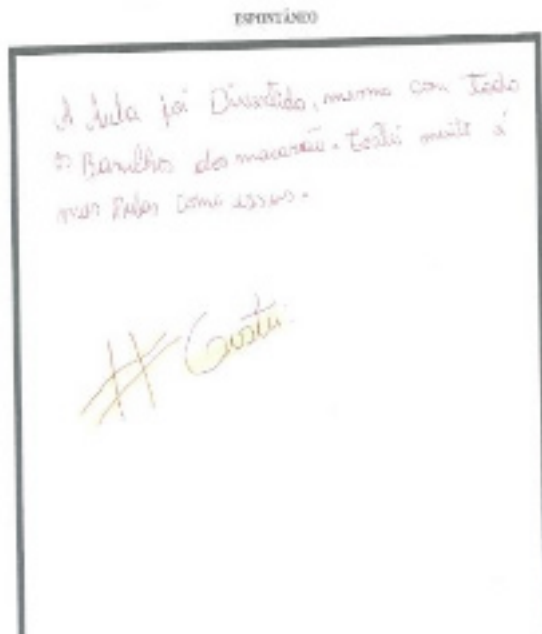 ESPONTÂNEO
A Aula foi Divertido, mesmo com Todo
o Barulhos dos macarrão. Gostei muito
mas Aulas como essas.
# Gostei